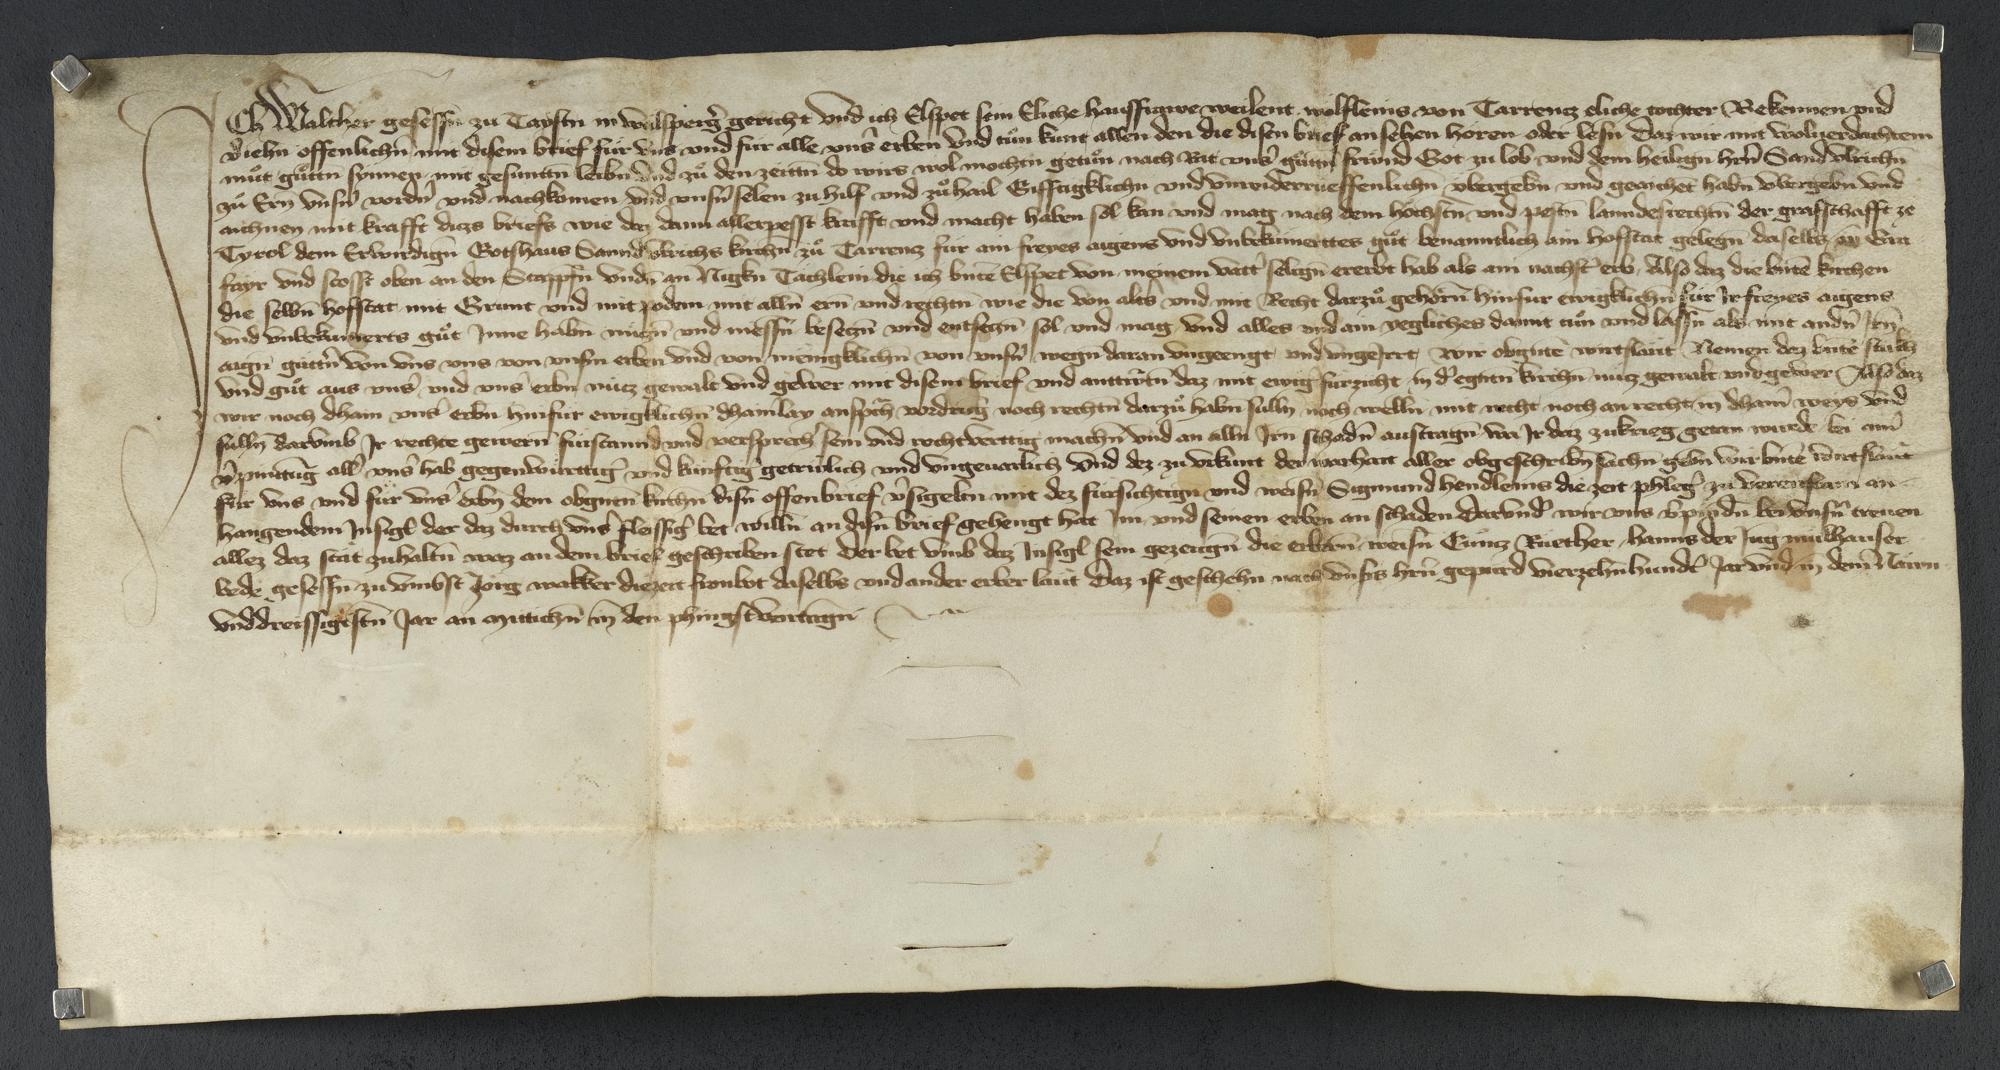 Ich Walther gesessn zu Taystn in welsperg̕ gericht vnd ich Elspet sein Eliche hausfrawe weilent wölfleins von Tarrencz eliche tochter Bekennen vnd
v̕iehn̄ offenlichn̄ mit disem brief für vns vnd für alle vnsˀ erben vnd tůn kunt allen den die disen brief an sehen hören oder lesn̄ Daz wir mit wolverdachtem
můt gůttn̄ synnen mit gesunttn̄ leibn̄ vnd zů den zeittn̄ do wirs wol mochtn̄ getůn nach Rat vnsˀ gůttn̄ frwnd Got zu lob vnd dem heilign̄ hrn̄ Sand vlrichn̄
zů Ern vnsˀn vordˀn vnd nachkomen vnd vnsˀn selen zu hilf vnd zů hail Gifftigklichn̄ vnd vnwiderrüeffenlichn̄ v̈bergebn̄ vnd geaichet habn̄ v̈bergebn̄ vnd
aichnen mit krafft diczs briefs wie daz dann allerpesst krafft vnd macht haben sol kan vnd mag nach dem höchstn̄ vnd pestn̄ lanndesrechtn̄ der grafschafft ze
Tyrol dem Erwirdign̄ Gotshaus Sannd vlrichs kirchn̄ zů Tarrencz für ain freyes aigens vnd vnbekümerttes gůt benanntlich ain hofstat gelegn̄ daselbs
vnd stosst oben an den Stapffn̄ vndn̄ an Nigkn̄ Tächlein die ich bntē Elspet von meinem vattˀ selign̄ ererbt hab als ain nachstˀ erb Also daz die bntē kirchen
die selbn̄ hofstat mit Grunt vnd mit podem mit alln̄ ern̄ vnd rechtn̄ wie die von altˀs vnd mit Recht darzů gehörn̄ hinfur ewigklichn̄ für Jr freyes aigens
vnd vnbekumerts gůt Jnne habn̄ nüczn̄ vnd niessn̄ beseczn̄ vnd entseczn̄ sol vnd mag vnd alles vnd ain yegliches damit tůn vnd lassn̄ als mit andˀn Jrn̄
aign̄ güttˀn von vns vnsˀn erben vnd von mënigklichn̄ von vnsˀn wegn̄ daran vngeengt vnd vngeirrt Wir obgntē wirtslaüt Nemen daz bntē stukh
vnd gůt aus vnsˀ vnd vnsˀ erbn̄ nücz gewalt vnd gewer mit disem brief vnd anttwrtn̄ daz mit ewigˀ fürzicht in dˀ egntn̄ kirchn̄ nücz gewalt vnd gewer Also daz
wir noch dhain vnsˀ erbn̄ hinfur ewigklichn̄ dhainlay ansprach vordrūg noch rechtn̄ darzů habn̄ sülln̄ noch welln̄ mit recht noch an recht in dhain̄ weys vnd
sülln̄ darvmb Jr rechte gewern̄ fürstannd vnd versprechˀ sein vnd rechtverttig machn̄ vnd an alln̄ Jrn̄ schadn̄ austragn̄ wa Jr daz zu krieg getan wurde bei ainˀ
vˀpintūg allˀ vnsˀ hab gegenwürttigˀ vnd künftigˀ getrülich vnd vngeuarlich Vnd dez zu vrkunt der warhait aller obgeschribn̄ sachn̄ gebn̄ wir bntē wirtslaüt
für vns vnd für vnsˀ erbn̄ dem obgnen̄ kirchn̄ disn̄ offenbrief vˀsigeltn̄ mit dez fürsichtign̄ vnd weisn̄ Sigmund hendleins die zeit phlegˀ zu verenstain an-
hangendem Jnsigl der daz durch vnsˀ fleissigˀ bet willn̄ an disn̄ brief gehengt hat Jm vnd seinen erben an schaden Darundˀ wir vns vˀpindn̄ bei vnsˀn trewen
allez daz stät zuhaltn̄ waz an dem brief geschriben stet Der bet vmb daz Jnsigl sein gezeugn̄ die erbern̄ weisn̄ Cüncz Rüether Hanns der Jüg mülhauser
bede gesessn̄ zu vmbst Jörg makker die zeit fronbot daselbs vnd ander erber laüt Daz ist geschehn̄ nach vnsˀs hrn̄ gepurd vierzehn̄hundˀt Jar vnd in dem Nain
vnd dreissigistn̄ Jar an Mitichn̄ in den phingstveirtagn̄